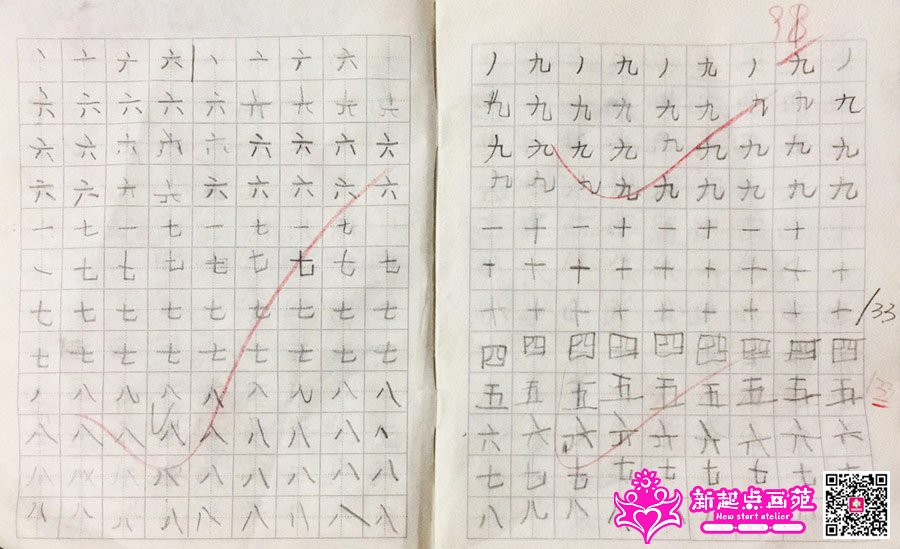 丶 亠 六 六 丶 亠 六 六
六 六 六 六 六 六 六 六 六
六 六 六 六 六 六 六 六 六
六 六 六 六 六 六 六 六 六
一 七 一 七 一 七 一 七
一 七 七 七 七 七 七 七 七
七 七 七 七 七 七 七 七 七
七 七 七 七 七 七 七 七 七
丿 八 八 八 八 八 八 八 八
八 八 八 八 八 八 八 八
八 八 八 八 八 八 八 八 八
八 八 八 八 八 八 八
98
丿 九 丿 九 丿 九 丿 九 丿
九 九 九 九 九 九 九 九 九
九 九 九 九 九 九 九 九 九
九 九 九 九 九 九 九 九 九
一 十 一 十 一 十 一 十
十 十 十 十 十 十 十 十 十
十 十 十 十 十 十 十 十 十
33
四 四 四 四 四 四 四 四 四
五 五 五 五 五 五 五 五 五
33
六 六 六 六 六 六 六 六 六
七 七 七 七 七 七 七 七 七
八 八 八 八
新起点画苑
New start atelier